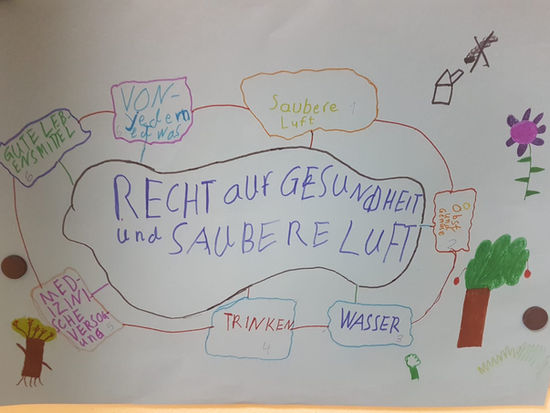 RECHT aUF GESUNDHEIT
und SAUBERE LUFT
Saubere 1
Luft
Obst
und
Gemüse
2
WASSER 3
TRINKEN
4
MED-
IZINI
SCHE
VERSORG
ung 5
GUTE LEB
ENSMITTEL
6
VON-
Jedem
etwas